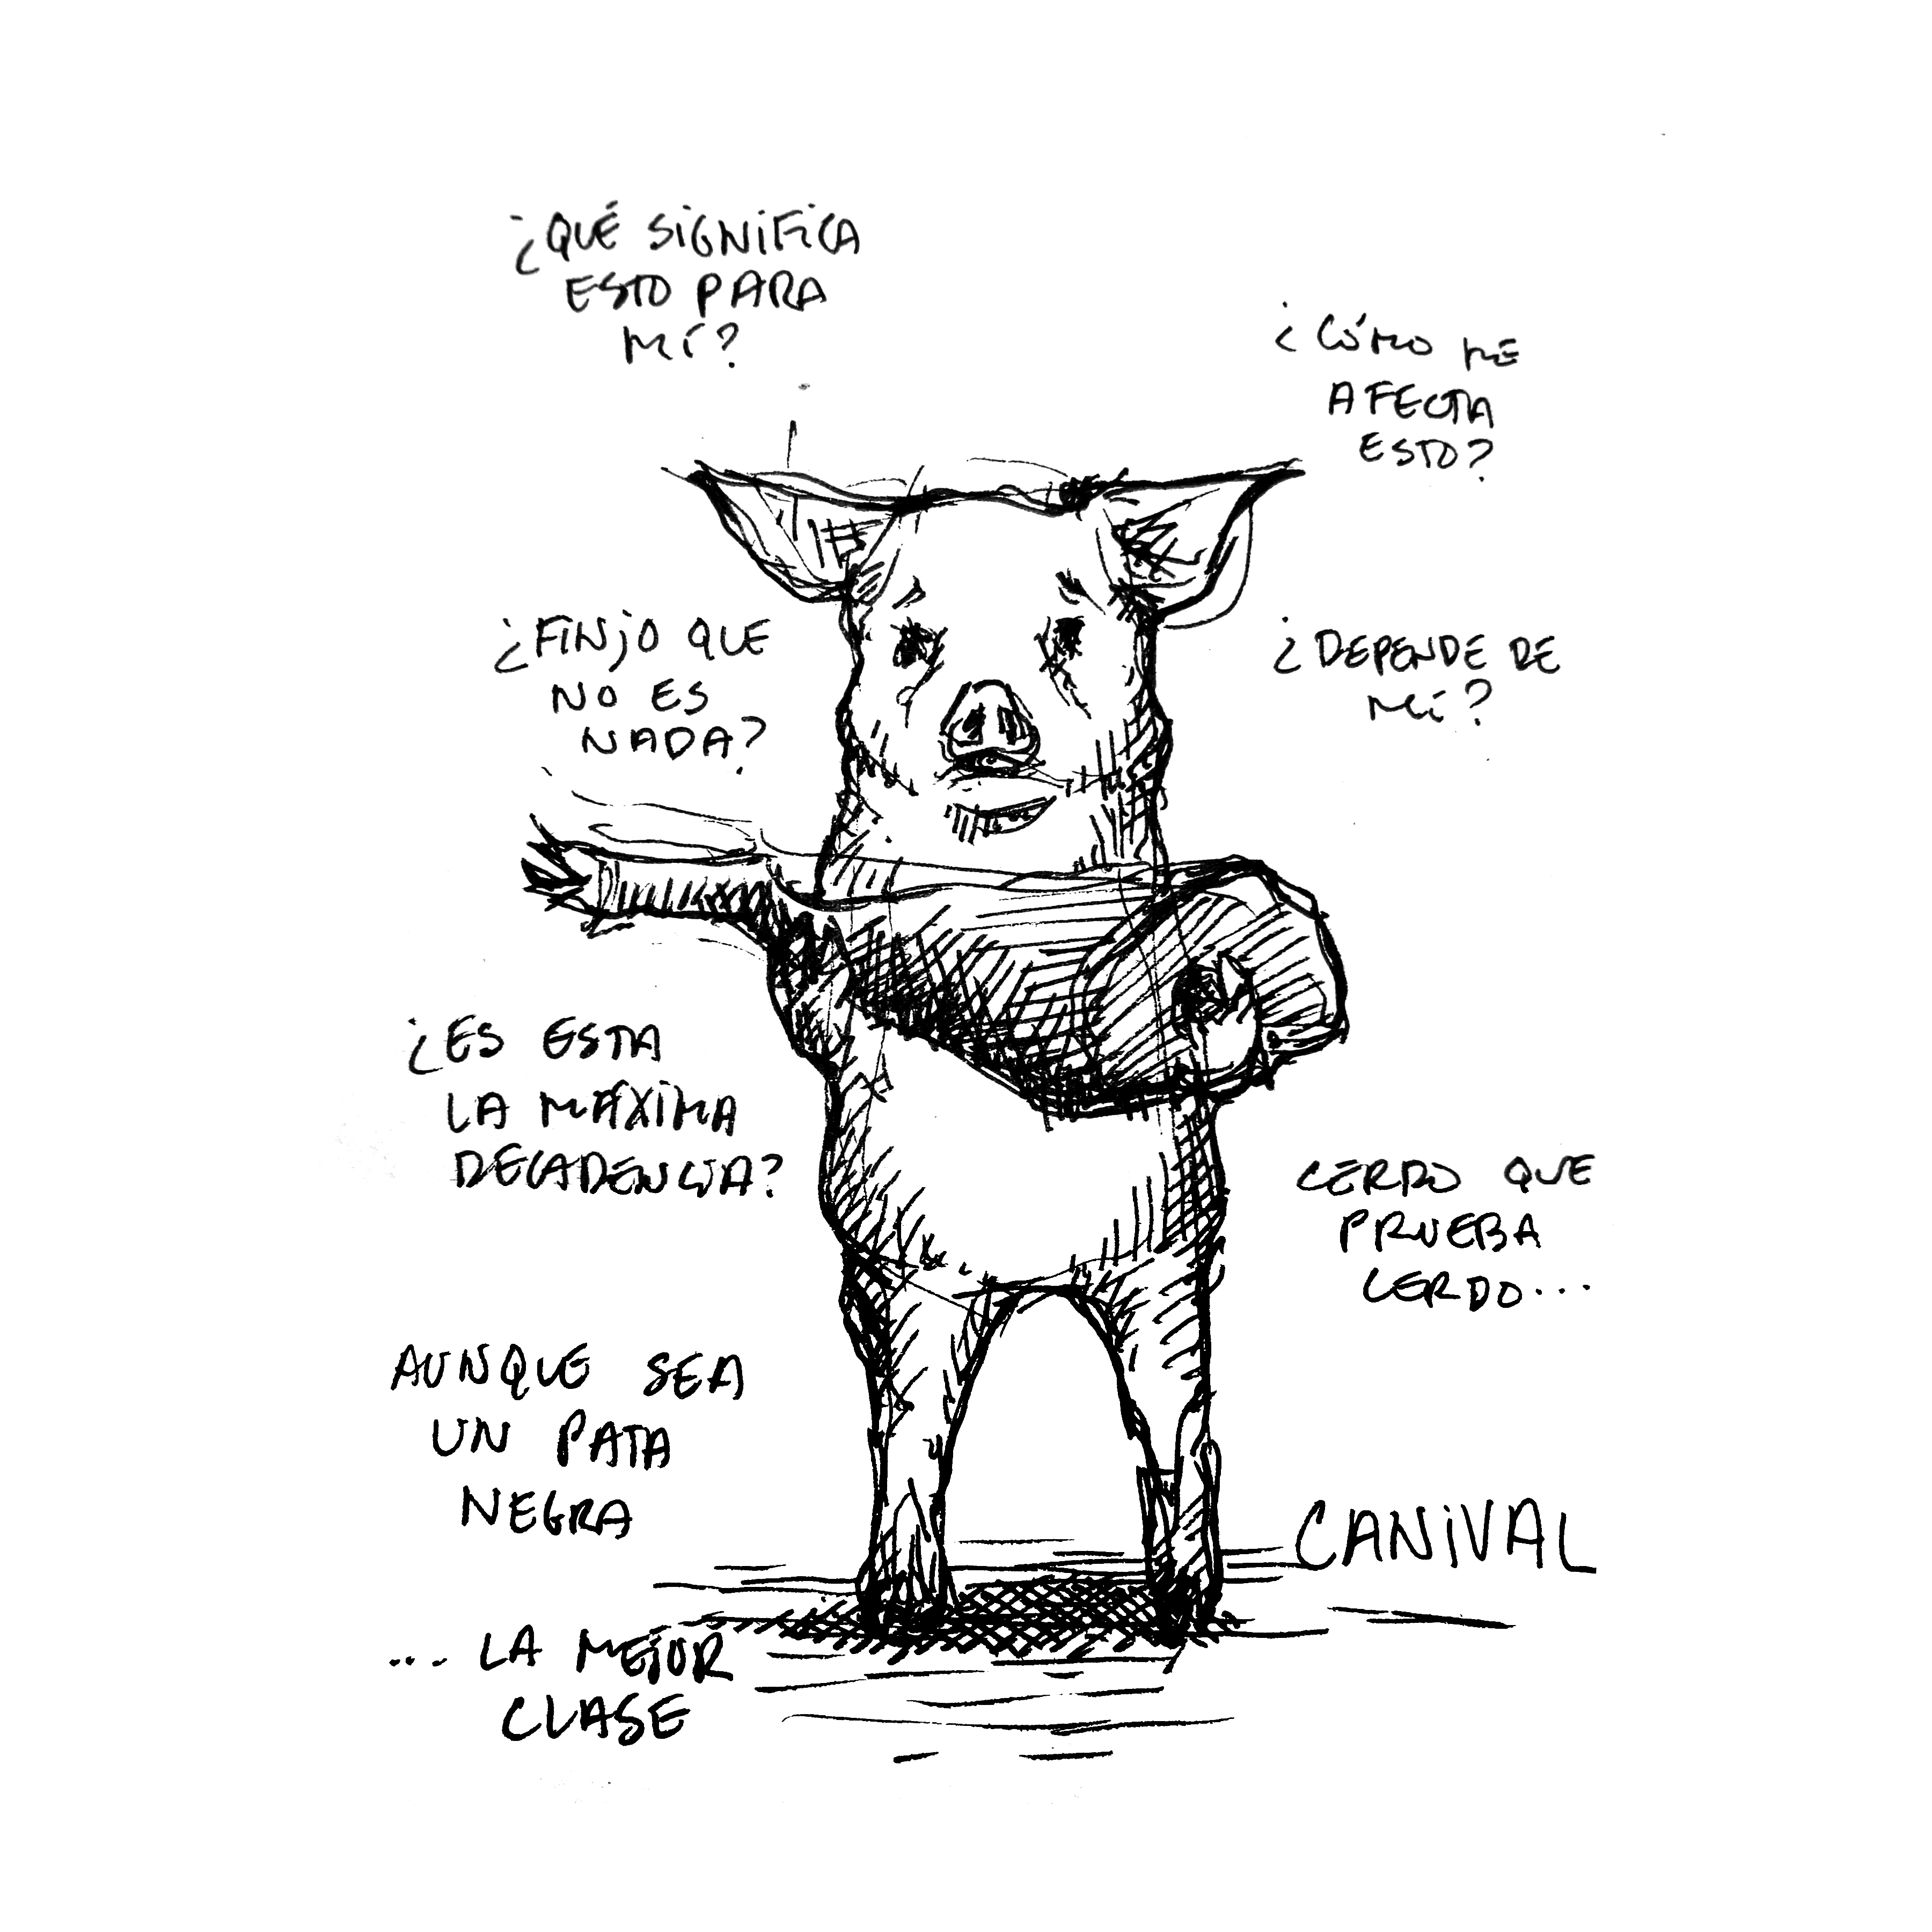 ¿QUÉ SIGNIFICA
ESTO PARA
MÍ?
¿CÓMO ME
AFECTA
ESTO?
¿FINJO QUE
NO ES
NADA?
¿DEPENDE DE
MÍ?
¿ES ESTA
LA MÁXIMA
DECADENCIA?
CERDO QUE
PRUEBA
CERDO...
AUNQUE SEA
UN PATA
NEGRA
CANIVAL
... LA MEJOR
CLASE